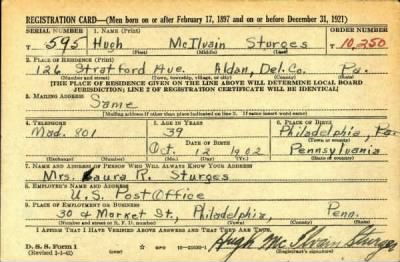 REGISTRATION CARD—(Men born on or after February 17, 1897 and on or before December 31, 1921)
SERIAL NUMBER 1. NAME (Print) ORDER NUMBER
595 Hugh McIlvain Sturges 10,250
(First) (Middle) (Last)
2. PLACE OF RESIDENCE (Print)
126 Stratford Ave. Aldan, Del. Co. Pa.
(Number and street) (Town, township, village, or city) (County) (State)
[THE PLACE OF RESIDENCE GIVEN ON THE LINE ABOVE WILL DETERMINE LOCAL BOARD
JURISDICTION; LINE 2 OF REGISTRATION CERTIFICATE WILL BE IDENTICAL]
3. MAILING ADDRESS
Same
[Mailing address if other than place indicated on line 2. If same insert word same]
4. TELEPHONE 5. AGE IN YEARS 6. PLACE OF BIRTH
Mad. 801 39 Philadelphia, Pa.
DATE OF BIRTH (Town or county)
Oct. 12 1902 Pennsylvania
(Exchange) (Number) (Mo.) (Day) (Yr.) (State or country)
7. NAME AND ADDRESS OF PERSON WHO WILL ALWAYS KNOW YOUR ADDRESS
Mrs. Laura R. Sturges
8. EMPLOYER'S NAME AND ADDRESS
U.S. Post Office
9. PLACE OF EMPLOYMENT OR BUSINESS
30th & Market St., Philadelphia, Penn.
(Number and street or R. F. D. number) (Town) (County) (State)
I AFFIRM THAT I HAVE VERIFIED ABOVE ANSWERS AND THAT THEY ARE TRUE.
D. S. S. Form 1
(Revised 1-1-42) (over) Hugh McIlvain Sturges
(Registrant's signature)